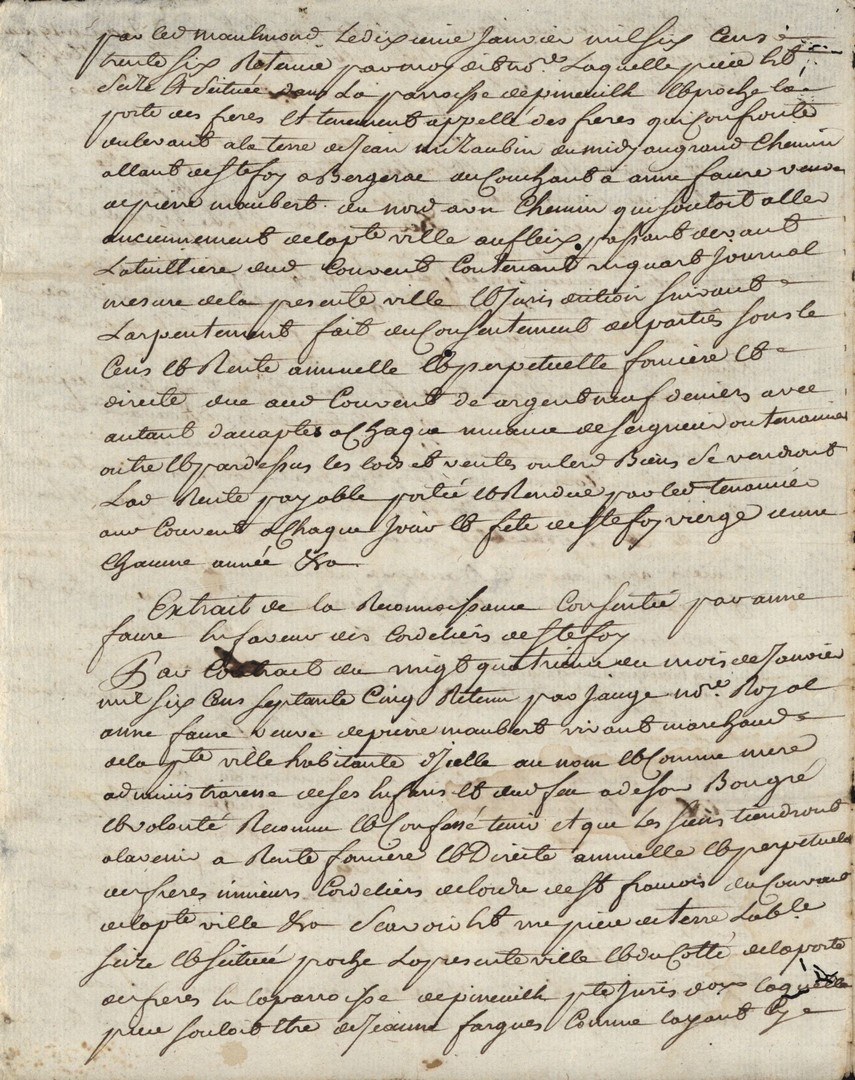 par led maulmond Le dixieme Janvier mil six Cens
trente six Retenue par moy dit nore. Laquelle piece est
Size Et Scituée dans La parroisse de pineuilh Et proche la
porte des freres Et tenement appellé des freres qui Confronte
du levant a la terre de Jean du midy au grand Chemin
allant de Ste foy a Bergerac du Couchant a anne faure veuve
de pierre maubert du nord a un Chemin qui souloit aller
anciennement de la pte ville au fleix passant devant
La tuilliere dud Couvent Contenant un quart Journal
mesure de la presente ville Et Jurisdiction suivant
Larpentement fait du Consentement des parties sous le
Cens Et Rente annuelle Et perpetuelle fonciere Et
directe due aud Couvent de argent neuf deniers avec
autant dacaptes a Chaque muance de seigneur ou tenancier
outre Et par dessus les lods et ventes ou lesd Biens se vendront
Lad Rente payable portée Et Rendue par led tenancier
aud Couvent a Chaque Jour Et fete de Ste foy vierge dune
Chacune année &ca
Extrait de la Reconnoissance Consentie par anne
faure En faveur des Cordeliers de Ste foy
Par Contrait du vingt quatrieme du mois de Janvier
mil six Cens septante Cinq Retenu par Jauge nore. Royal
anne faure veuve de pierre maubert vivant marchand
de la pte ville habitante d'jcelle au nom Et Comme mere
administraresse de ses Enfans Et dud feu a de son Bongré
Et volonté Reconnu Et Confessé tenir et que Les siens tiendront
a lavenir a Rente fonciere Et Directe annuelle Et perpetuelle
des freres mineurs Cordeliers de lordre de St francois du Couvant
de la pte ville &ca Scavoir Est une piece de terre Lable
Size Et Scituée proche La presente ville Et du Cotté de la porte
des freres En la parroisse de pineuilh pte Jurisdon laquelle
piece souloit Etre de Jeanne fargues Comme layant